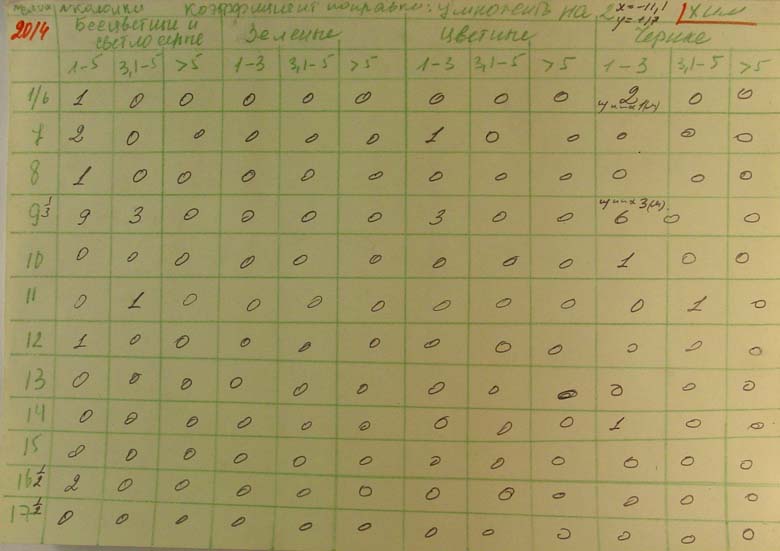 коэффициент поправки: умножить на 2 x = -11,1
y = 1,7
20/4 Бесцветные и светло серые Зеленые Цветные Черные
1-5 3,1-5 >5 1-3 3,1-5 >5 1-3 3,1-5 >5 1-3 3,1-5 >5
1/6 1 0 0 0 0 0 0 0 0 2 0 0
7 2 0 0 0 0 0 1 0 0 0 0 0
8 1 0 0 0 0 0 0 0 0 0 0 0
9 1/3 9 3 0 0 0 0 3 0 0 6 0 0
10 0 0 0 0 0 0 0 0 0 1 0 0
11 0 1 0 0 0 0 0 0 0 0 1 0
12 1 0 0 0 0 0 0 0 0 0 0 0
13 0 0 0 0 0 0 0 0 0 0 0 0
14 0 0 0 0 0 0 0 0 0 1 0 0
15 0 0 0 0 0 0 0 0 0 0 0 0
16 1/2 2 0 0 0 0 0 0 0 0 0 0 0
17 1/2 0 0 0 0 0 0 0 0 0 0 0 0